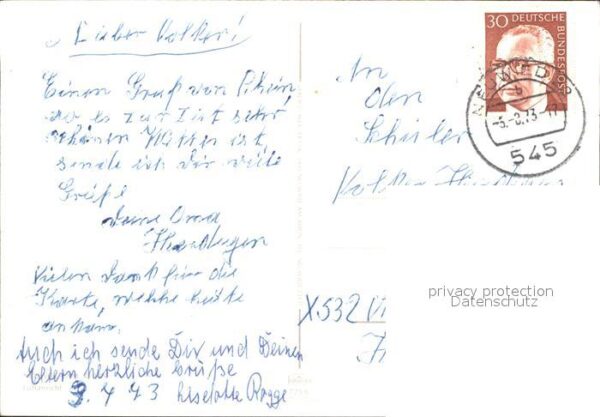 Lieber Volker!
Einen Gruß vom Rhein,
wo es zur Zeit sehr
schönes Wetter ist,
sende ich Dir viele
Grüße
Deine Oma
Vielen Dank für die
Karte, welche heute
ankam.
Auch ich sende Dir und Deinen
Eltern herzliche Grüße
Liselotte Rogge
30 DEUTSCHE
BUNDESPOST
NEUWIED
545
An
den
Schüler
Volker
X532
privacy protection
Datenschutz